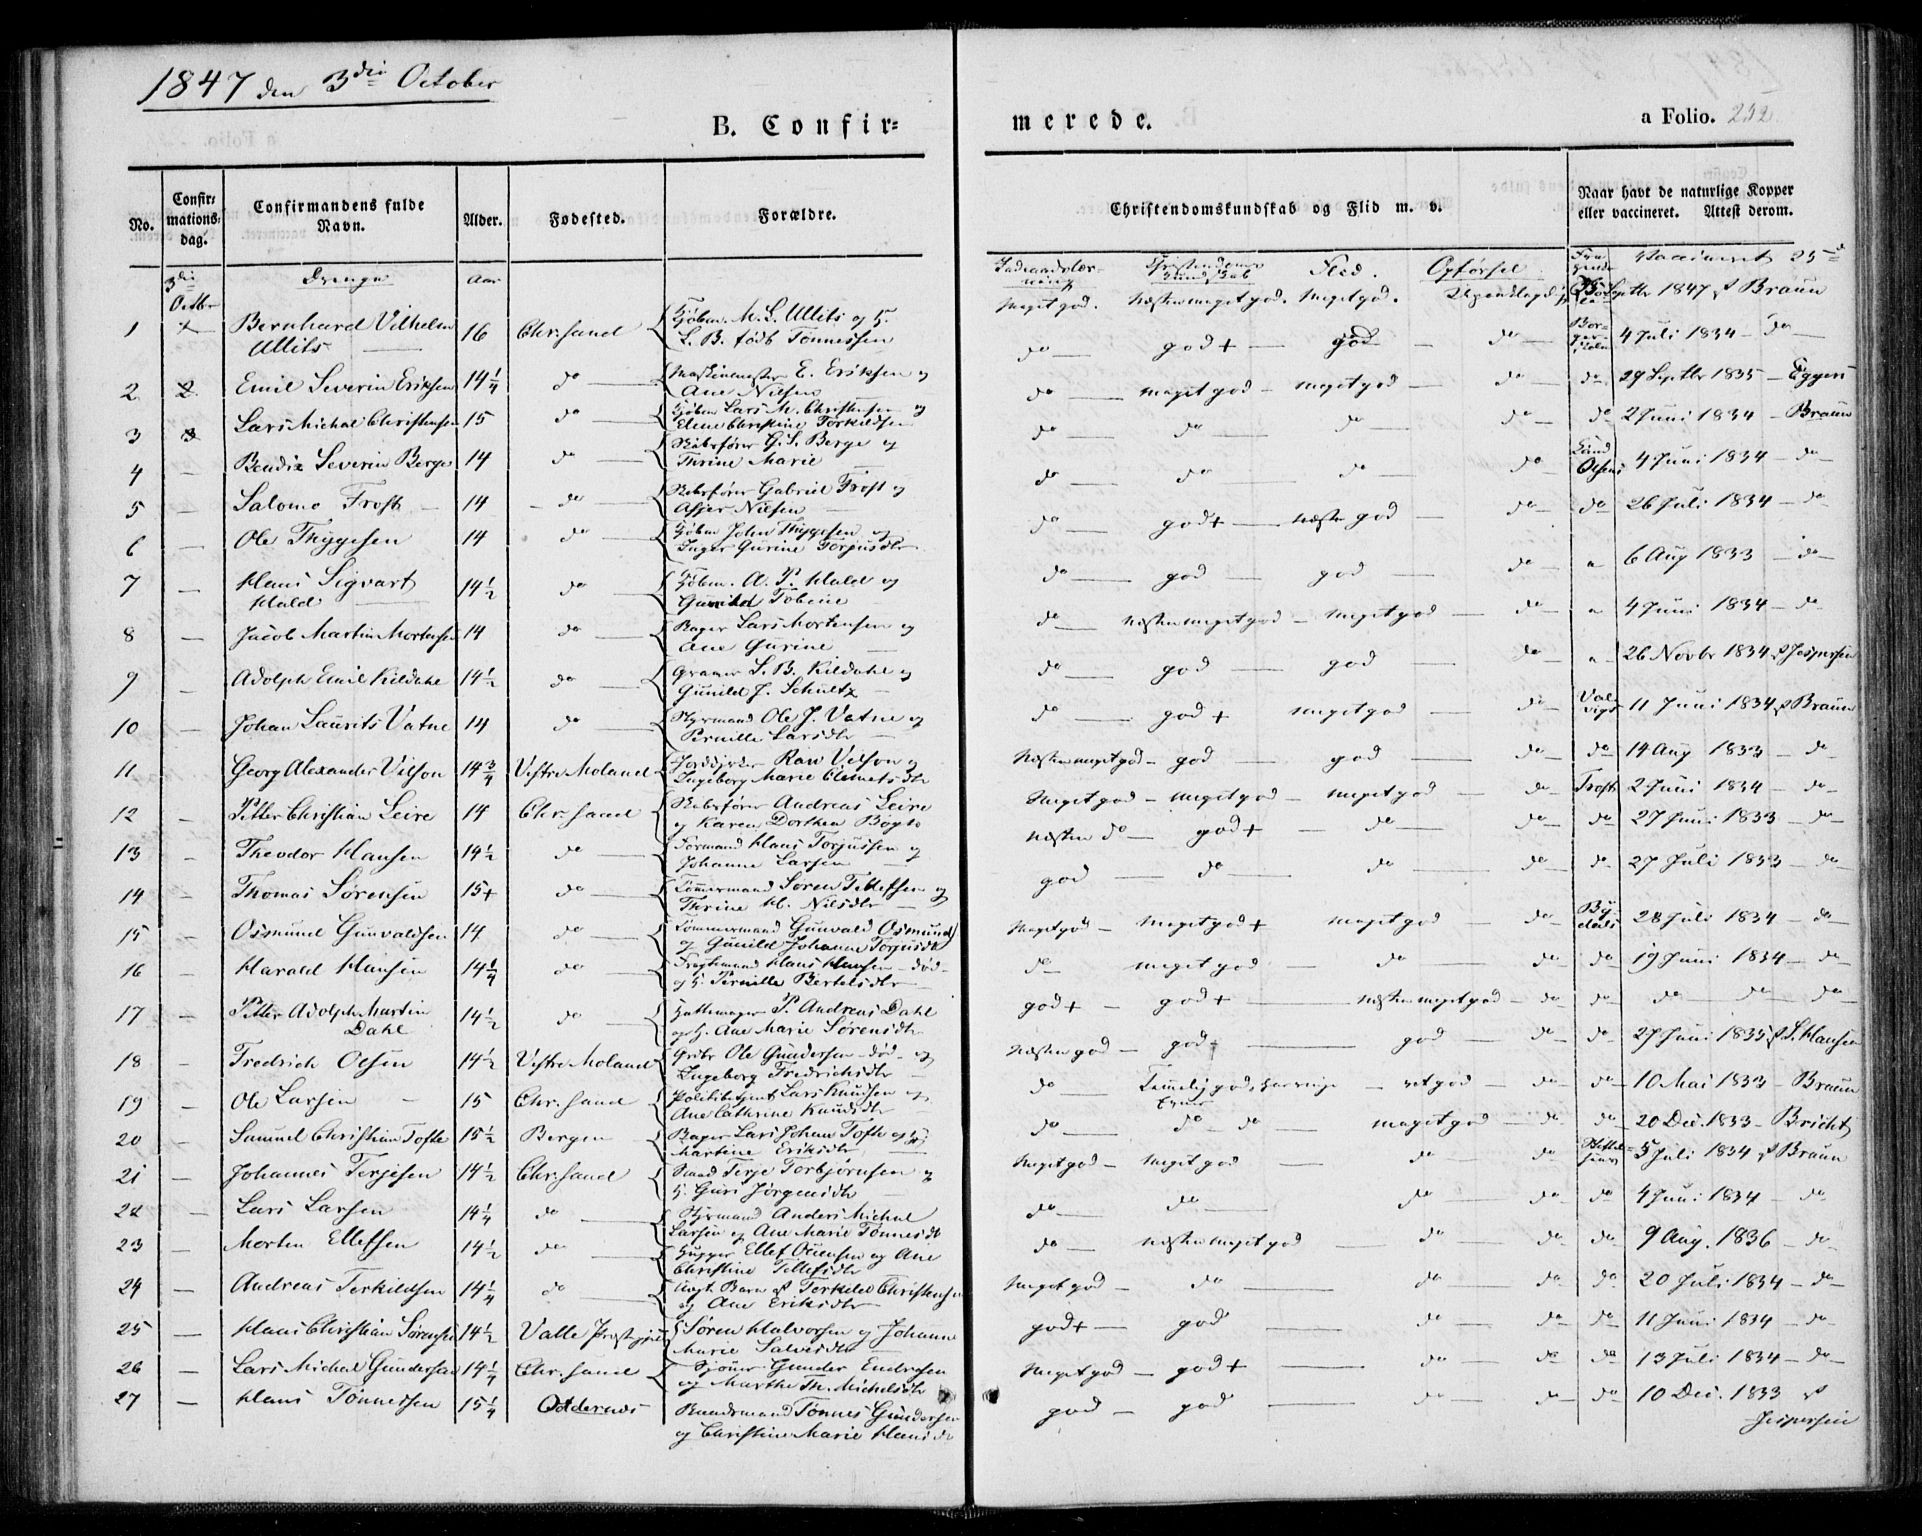 1847 den 3die October
B. Confir=
merede.
a Folio. 232
No.
Confir=
mations=
dag.
Confirmandens fulde
Navn.
Alder.
Fødested.
Forældre.
Christendomskundskab og Flid m. v.
Naar havt de naturlige Kopper
eller vaccineret. Attest derom.
3die Octbr Drenge Aar
Flid. Opførsel
Vaccineret 25de
Meget god. Næsten meget god. Meget god. Septbr 1847 Braun
1 Bernhard Vilhelm 16 Chr.sand Kjøbm. M. S. Ullits og H.
Ullits L. B. født Tønnessen
do god + god do 4 Juli 1834 do
2 Emil Severin Eriksen 14 1/4 do E. Eriksen og
Ane Nilsen
do meget god meget god do do 29 Septbr 1835 Eggers
3 Lars Michal Christensen 15 do Kjøbm Lars M. Christensen og
Elene Christine Torkildsen
do do do do do 2 Juni 1834 Braun
4 Bendix Severin Berge 14 do G. S. Berge og
Thrine Marie
do do do do Olsens 4 Juni 1834 do
5 Salomo Frost 14 do Gabriel Frost og
Asser Nilsen
do god + næsten god do do 26 Juli 1834 do
6 Ole Thygesen 14 do Kjøbm John Thygesen og
Inger Gurine Torjusdtr
do god god do 6 Aug 1833 do
7 Hans Sigvart 14 1/2 do Kjøbm. A. P. Hald og
Hald Gunild Tobine
do næsten meget god meget god do 4 Juni 1834 do
8 Jacob Martin Mortensen 14 do Bager Lars Mortensen og
Ane Gurine
do god god do 26 Novbr 1834 Jespersen
9 Adolph Emil Kildahl 14 1/2 do S. B. Kildahl og
Gunild J. Schultz
do god + meget god do 11 Juni 1834 Braun
10 Johan Laurits Vatne 14 do Styrmand Ole J. Vatne og
Pernille Larsdtr
Næsten meget god god god do do 14 Aug 1833 do
11 Georg Alexander Vilson 14 3/4 Vestre Moland Vilson og
Ingeborg Marie Clemetsdtr
Meget god meget god meget god do Frost 2 Juni 1834 do
12 Petter Christian Leire 14 Chr.sand Andreas Leire
og Karen Dorthea
næsten do god + do do do 27 Juni 1833 do
13 Theodor Hansen 14 1/2 do Formand Hans Torjussen og
Johanne Larsen
god do do do do 27 Juli 1833 do
14 Thomas Sørensen 15+ do Tømmermand Søren Tellefsen og
Thrine H. Nilsdtr
Meget god meget god + meget god do 28 Juli 1834 do
15 Osmund Gunvaldsen 14 do Tømmermand Gunvald Osmunds
og Gunild Johanne Torjusdtr
do meget god do do do 19 Juni 1834 do
16 Harald Hansen 14 1/4 do Hans Hansen død
og H. Pernille Bertelsdtr
god + god + næsten meget god do do do do do
17 Petter Adolph Martin 14 1/2 do P. Andreas Dahl
Dahl og H. Ane Marie Sørensdtr
næsten god god + god do do 27 Juni 1835 S. Hansen
18 Fredrich Olsen 14 1/2 Vestre Moland Ole Gundersen død og
Ingeborg Fredrichsdtr
do ret god do do 10 Mai 1833 Braun
19 Ole Larsen 15 Chr.sand Politibetjent Lars Knudsen og
Ane Cathrine Knudsdtr
do do do meget god do do 20 Dec. 1833
20 Samuel Christian Tofte 15 1/2 Bergen Bager Lars Johan Tofte og H.
Martine Eriksdtr
Meget god meget god do do 5 Juli 1834 Braun
21 Johannes Terjesen 14 1/2 Chr.sand Terje Torbjørnsen og
H. Guri Jørgensdtr
do do do do do 4 Juni 1834 do
22 Lars Larsen 14 1/4 do Styrmand Anders Michal
Larsen og Ane Marie Tønnesdtr
do næsten meget god do do do 9 Aug. 1836 do
23 Morten Ellefsen 14 1/2 do Ellef Ouensen og Ane
Christine Tellefsdtr
Meget god do do do do 20 Juli 1834 do
24 Andreas Terkildsen 14 1/4 do Barn Terkild Christensen
og Ane Eriksdtr
god + god do do do 11 Juni 1834 do
25 Hans Christian Sørensen 14 1/2 Valle Søren Halvorsen og Johanne
Marie Salvesdtr
Meget god god + do do do 13 Juli 1834 do
26 Lars Michal Gundersen 14 1/4 Chr.sand Gunder Endresen
og Marthe Th. Michelsdtr
god god do do do 10 Dec. 1833
27 Hans Tønnessen 15 1/4 Oddernes Tønnes Gundersen
og Christine Marie Hansdtr
Jespersen